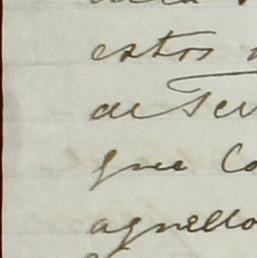 estos
de Ter
que Co
aquello